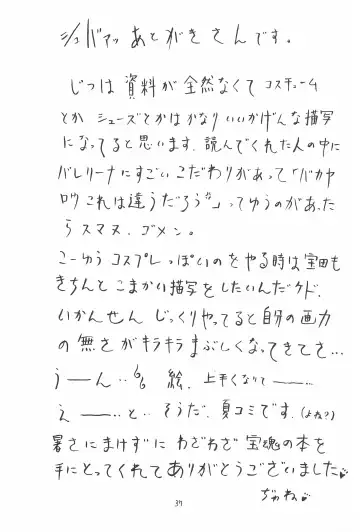 シュバァッ あとがきさんです。
じつは 資料が 全然なくて コスチューム
とか シューズとかは かなり いいかげんな 描写
になってると思います. 読んでくれた人の中に
バレリーナにすごいこだわりがあって「バカヤ
ロウ これは違うだろう」ってゆうのがあった
ら スマヌ. ゴメン。
こーゆう コスプレっぽいのをやる時は宝田も
きちんと こまかい描写を したいんだケド.
いかんせん じっくりやってると 自分の画力
の 無さが キラキラ まぶしくなってきてさ…
うーん‥ 絵. 上手くなりて———.
え———‥と‥ そうだ. 夏コミです. (よね?)
暑さにまけずに わざわざ 宝魂の本を
手にとってくれて ありがとうございました
ぢゃね
37